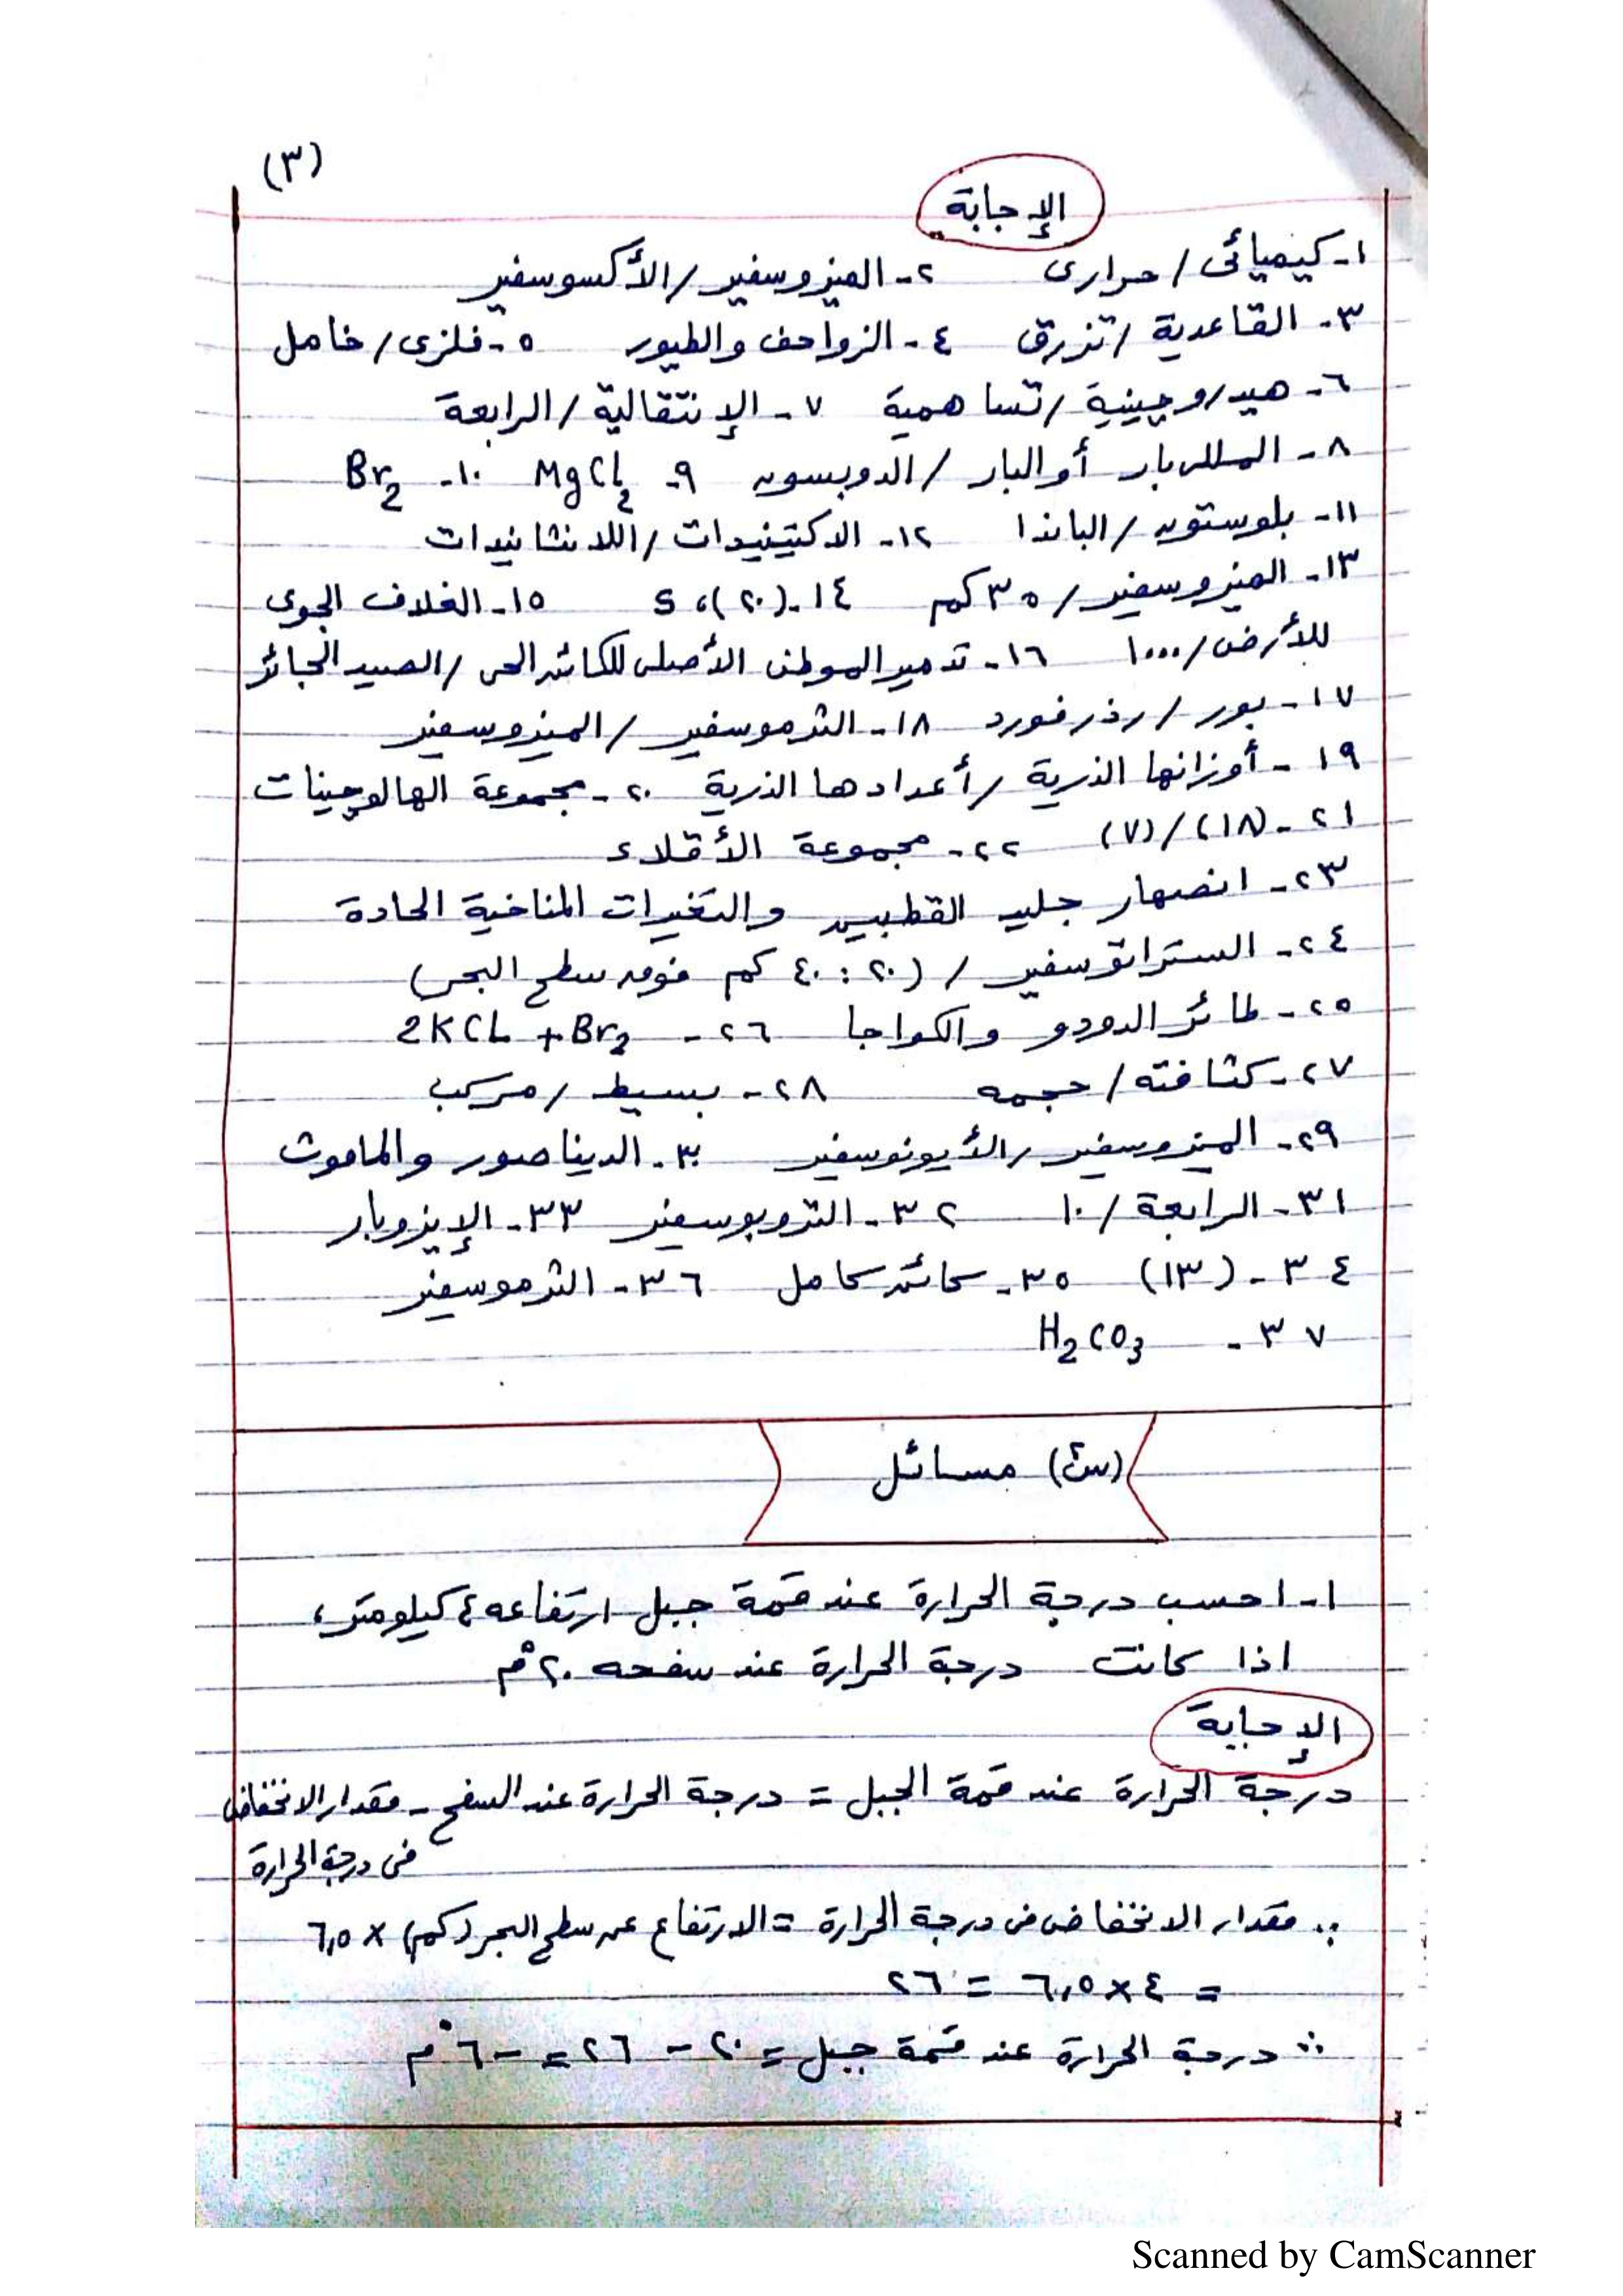 (٣)
الإجابة
١- كيميائى / حرارى ٢- الميزوسفير / الأكسوسفير
٣- القاعدية / تزرق ٤- الزواحف والطيور ٥- فلزى / خامل
٦- هيدروجينية / تساهمية ٧- الإنتقالية / الرابعة
٨- المللربار أو البار / الدوبسون ٩- MgCl2 ١٠- Br2
١١- بلوستون / الباندا ١٢- الاكتينيدات / اللانثانيدات
١٣- الميزوسفير / ٣٥ كم ١٤- (٢٠)، S ١٥- الغلاف الجوى
للأرض / ١٠٠٠ ١٦- تدمير الموطن الأصلى للكائن الحى / الصيد الجائر
١٧- بور / رذرفورد ١٨- الثرموسفير / الميزوسفير
١٩- أوزانها الذرية / أعدادها الذرية ٢٠- مجموعة الهالوجينات
٢١- (١٨) / (٧) ٢٢- مجموعة الأقلاء
٢٣- انصهار جليد القطبين والتغيرات المناخية الحادة
٢٤- الستراتوسفير / (٢٠ : ٤٠ كم فوق سطح البحر)
٢٥- طائر الدودو والكواجا ٢٦- 2KCL + Br2
٢٧- كثافته / حجمه ٢٨- بسيط / مركب
٢٩- الميزوسفير / الأيونوسفير ٣٠- الديناصور والماموث
٣١- الرابعة / ١٠ ٣٢- التروبوسفير ٣٣- الإيزوبار
٣٤- (١٣) ٣٥- كائن كامل ٣٦- الثرموسفير
٣٧- H2CO3
(س٤) مسائل
١- احسب درجة الحرارة عند قمة جبل ارتفاعه ٤ كيلومتر،
اذا كانت درجة الحرارة عند سفحه ٢٠°م
الإجابة
درجة الحرارة عند قمة الجبل = درجة الحرارة عند السفح - مقدار الانخفاض
فى درجة الحرارة
∵ مقدار الانخفاض فى درجة الحرارة = الارتفاع عن سطح البحر (كم) × ٦,٥
= ٤ × ٦,٥ = ٢٦
∴ درجة الحرارة عند قمة جبل = ٢٠ - ٢٦ = -٦°م
Scanned by CamScanner